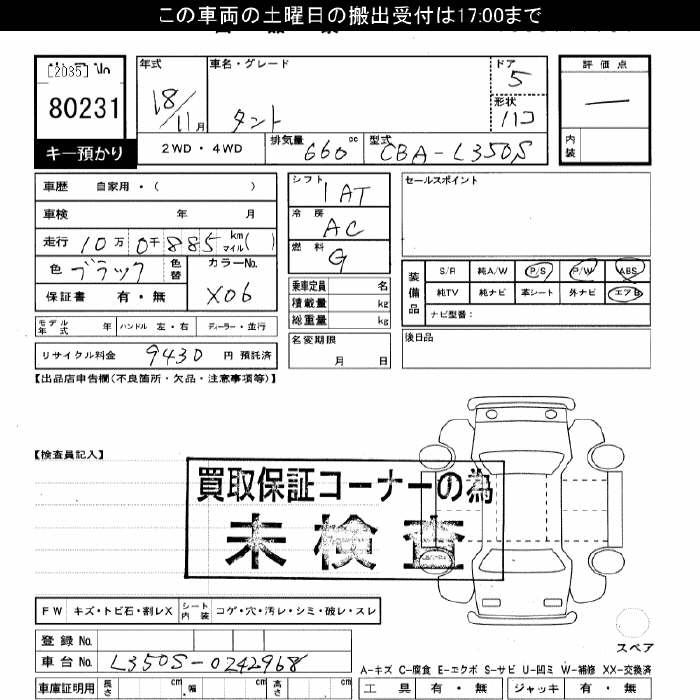 この車両の土曜日の搬出受付は17:00まで
[2035]
80231
キー預かり
年式 18/11月
車名・グレード タント
ドア 5
形状 ハコ
評価点 —
内装
2WD・4WD
排気量 660 cc
型式 CBA-L350S
車歴 自家用・( )
車検 年 月
走行 10万0千885 km マイル( )
色 ブラック 色替
カラーNo. X06
保証書 有・無
シフト 1AT
冷房 AC
燃料 G
乗車定員 名
積載量 kg
総重量 kg
名変期限 月 日
セールスポイント
装備品
S/R 純A/W P/S P/W ABS
純TV 純ナビ 革シート 外ナビ エアB
ナビ型番:
後日品
モデル年式 年 ハンドル 左・右 ディーラー・並行
リサイクル料金 9430 円 預託済
【出品店申告欄(不良箇所・欠品・注意事項等)】
【検査員記入】
買取保証コーナーの為
未検査
FW キズ・トビ石・割レX シート内装 コゲ・穴・汚レ・シミ・破レ・スレ
登録No.
車台No. L350S-0242968
車庫証明用 長さ cm 幅 cm 高さ cm
スペア
A-キズ C-腐食 E-エクボ S-サビ U-凹ミ W-補修 XX-交換済
工具 有・無 ジャッキ 有・無